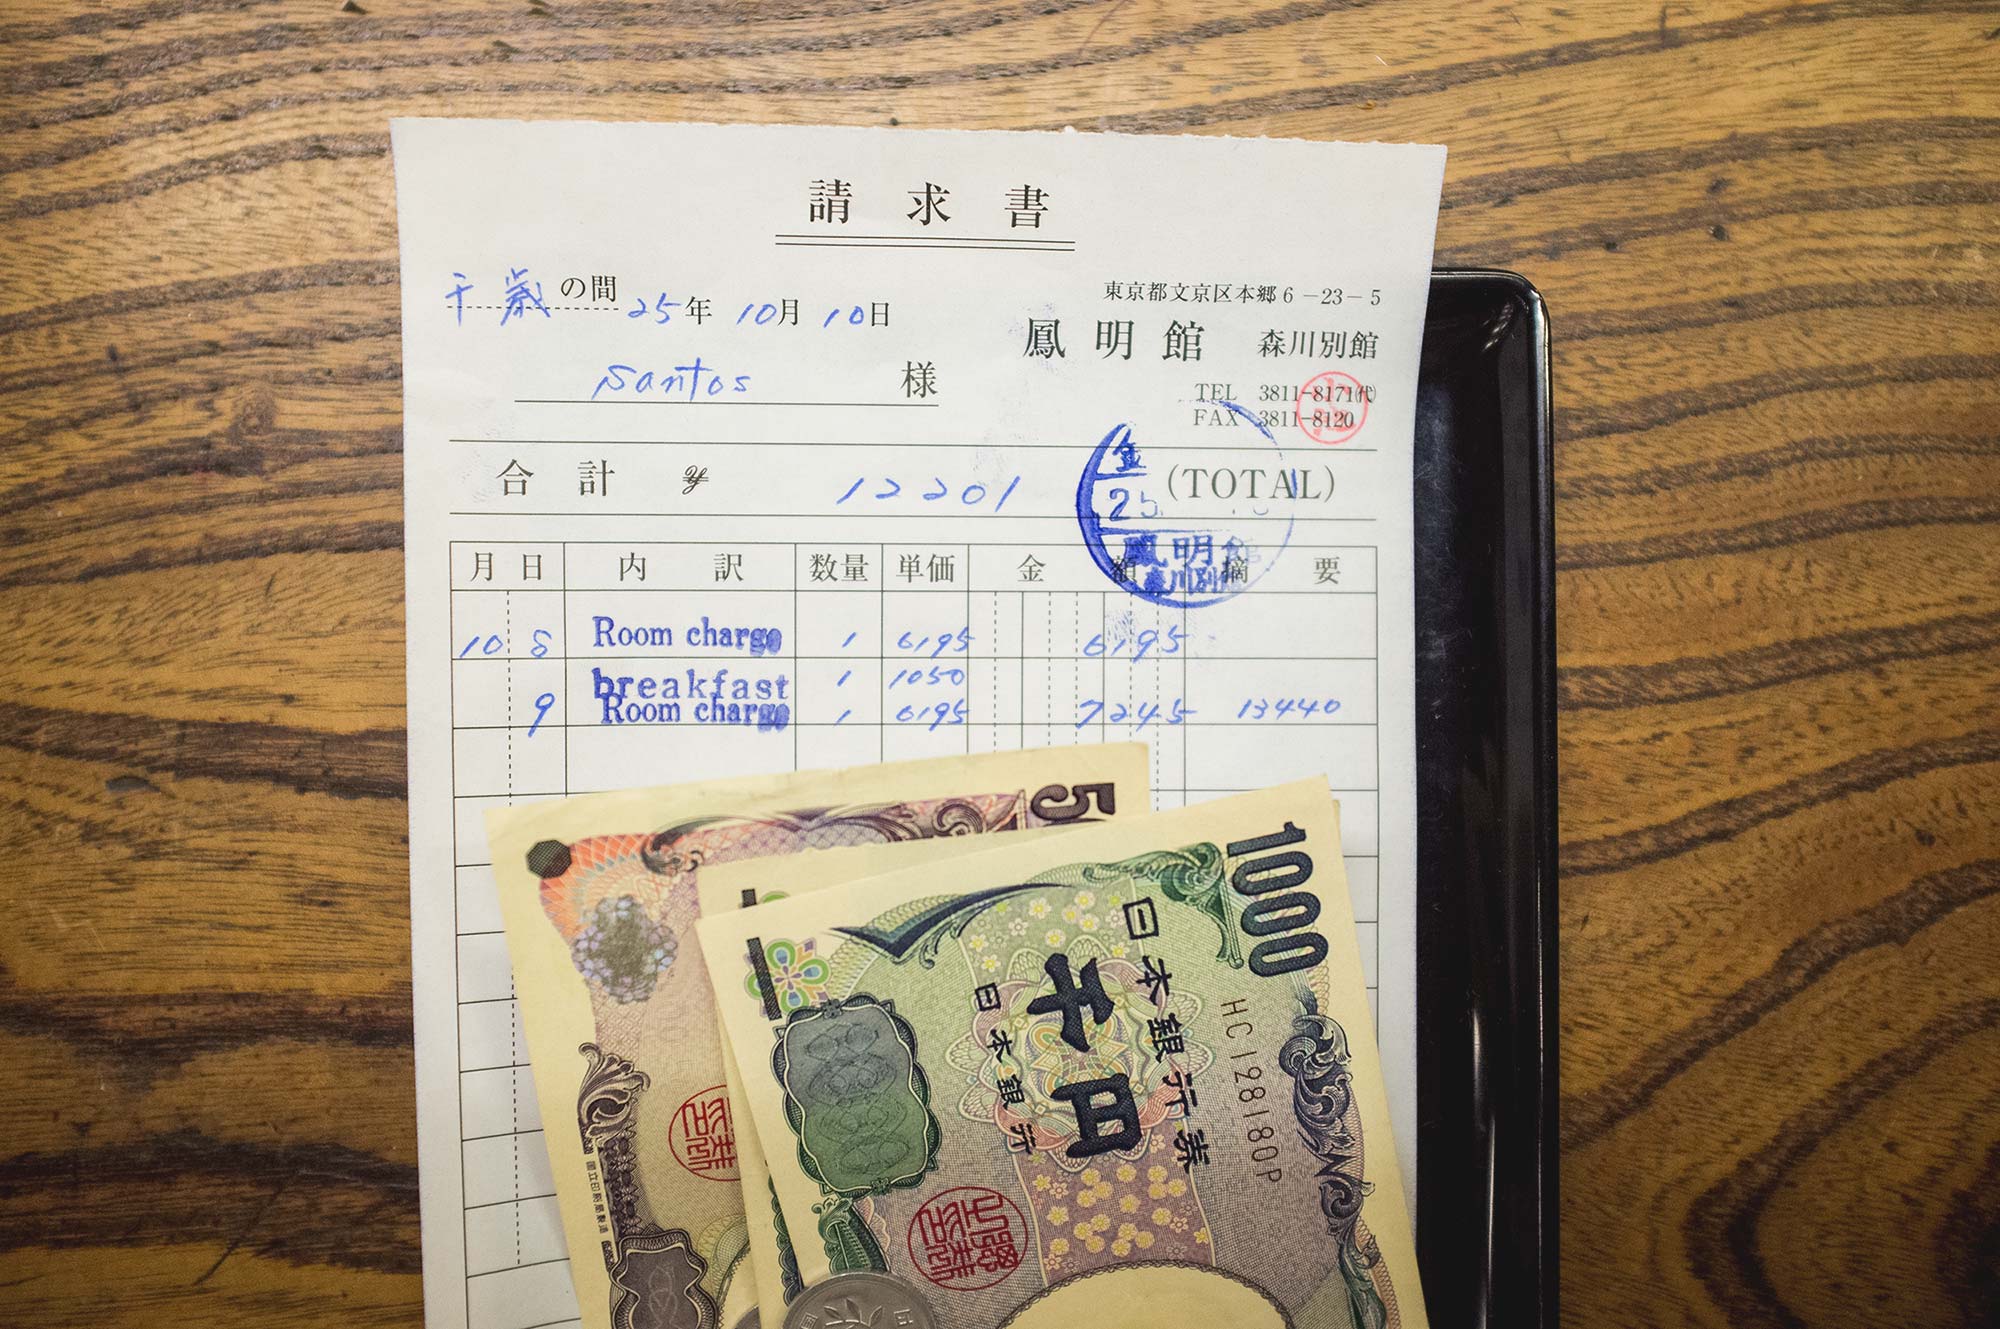 請求書
千歳の間 25年 10月 10日
Santos 様
東京都文京区本郷6-23-5
鳳明館 森川別館
TEL 3811-8171(代)
FAX 3811-8120
合計 ¥ 12201 (TOTAL)
金
25
鳳明館
森川別館
月 日 内訳 数量 単価 金額 摘要
10 8 Room charge 1 6195 6195
breakfast 1 1050
9 Room charge 1 6195 7245 13440
5
1000
日本銀行券
千円
日本銀行
HC128180P
国立印刷局製造